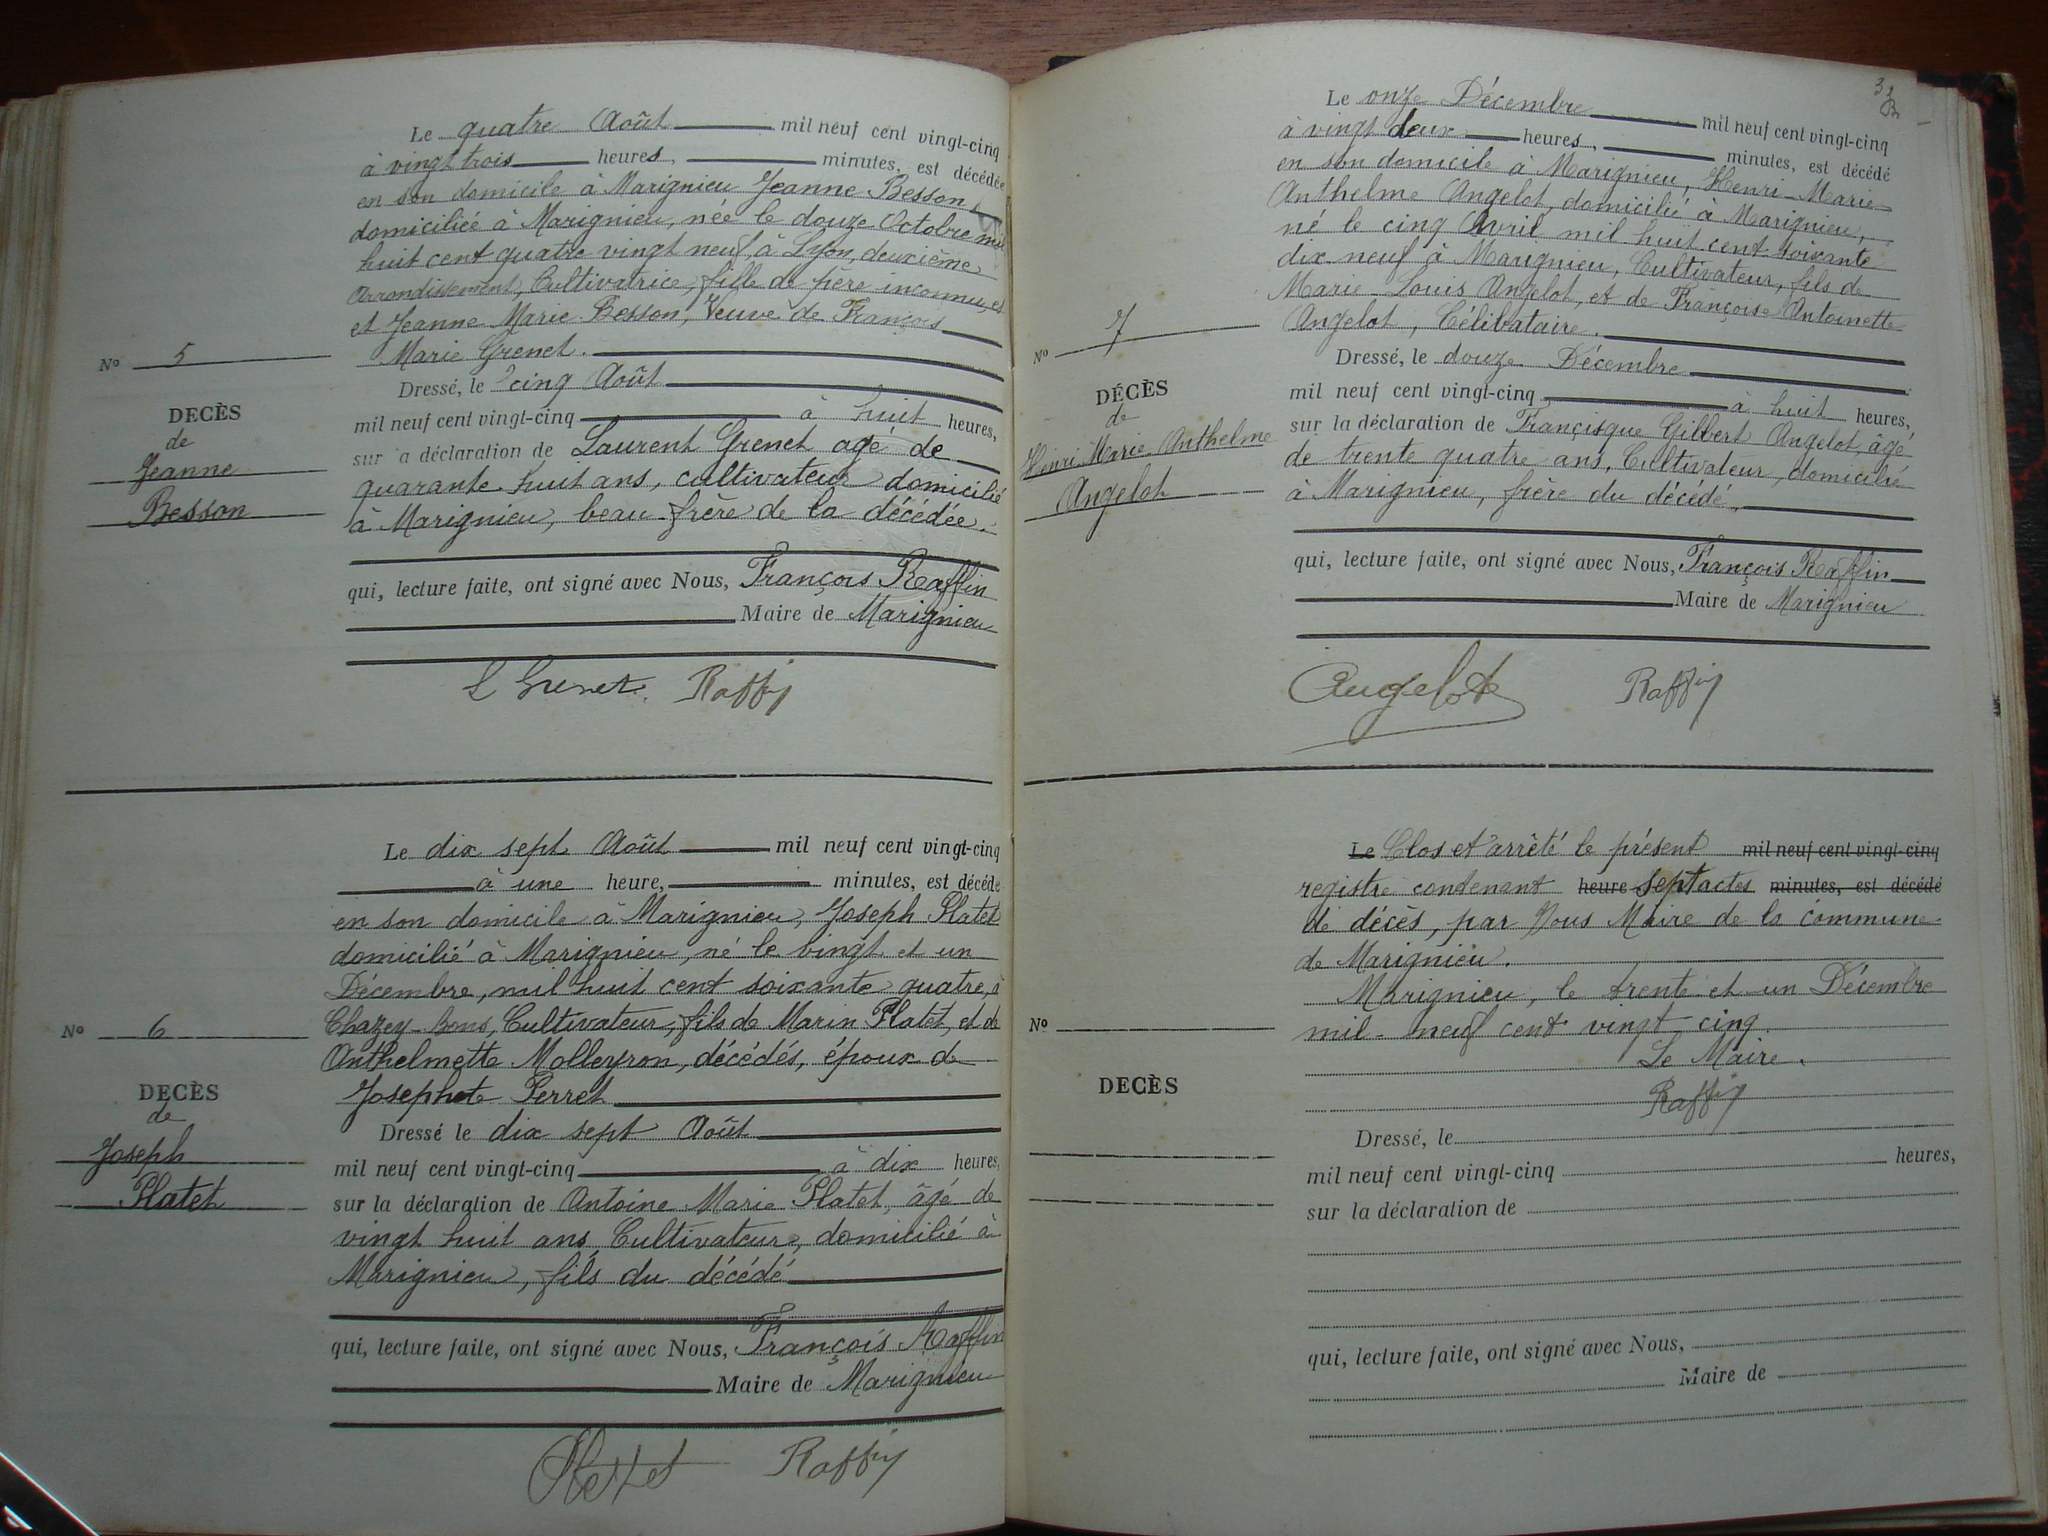 Le quatre Août mil neuf cent vingt-cinq
à vingt trois heures, minutes, est décédée
en son domicile à Marignieu Jeanne Besson,
domiciliée à Marignieu, née le douze Octobre mil
huit cent quatre vingt neuf, à Lyon, deuxième
Arrondissement, Cultivatrice, fille de père inconnu, et
et Jeanne Marie Besson, Veuve de François
Marie Grenet.
Nº 5
Dressé, le cinq Août
DECÈS
de
Jeanne
Besson
mil neuf cent vingt-cinq à huit heures,
sur la déclaration de Laurent Grenet agé de
quarante huit ans, cultivateur domicilié
à Marignieu, beau-frère de la décédée.
qui, lecture faite, ont signé avec Nous, François Raffin
Maire de Marignieu
L Grenet. Raffin
Le dix sept Août mil neuf cent vingt-cinq
à une heure, minutes, est décédé
en son domicile à Marignieu, Joseph Platet
domicilié à Marignieu, né le vingt et un
Décembre, mil huit cent soixante quatre, à
Chazey-Bons, Cultivateur, fils de Marin Platet, et de
Anthelmette Molleyron, décédés, époux de
Josephte Perret
Nº 6
DECÈS
de
Joseph
Platet
Dressé le dix sept Août
mil neuf cent vingt-cinq à dix heures,
sur la déclaration de Antoine Marie Platet, âgé de
vingt huit ans, Cultivateur, domicilié à
Marignieu, fils du décédé
qui, lecture faite, ont signé avec Nous, François Raffin
Maire de Marignieu
Platet Raffin
Le onze Décembre mil neuf cent vingt-cinq
à vingt deux heures, minutes, est décédé
en son domicile à Marignieu, Henri-Marie
Anthelme Angelot, domicilié à Marignieu,
né le cinq Avril mil huit cent soixante
dix neuf à Marignieu, Cultivateur, fils de
Marie Louis Angelot, et de Françoise Antoinette
Angelot, Célibataire.
Nº 7
DÉCÈS
de
Henri Marie Anthelme
Angelot
Dressé, le douze Décembre
mil neuf cent vingt-cinq, à huit heures,
sur la déclaration de Françisque Gilbert Angelot, âgé
de trente quatre ans, Cultivateur, domicilié
à Marignieu, frère du décédé.
qui, lecture faite, ont signé avec Nous, François Raffin
Maire de Marignieu
Angelot Raffin
Le Clos et arrêté le présent mil neuf cent vingt-cinq
registre contenant heure sept actes minutes, est décédé
de décès, par Nous Maire de la commune
de Marignieu.
Marignieu, le trente et un Décembre
mil-neuf cent vingt cinq.
Le Maire.
Raffin
Nº
DECÈS
Dressé, le
mil neuf cent vingt-cinq heures,
sur la déclaration de
qui, lecture faite, ont signé avec Nous,
Maire de